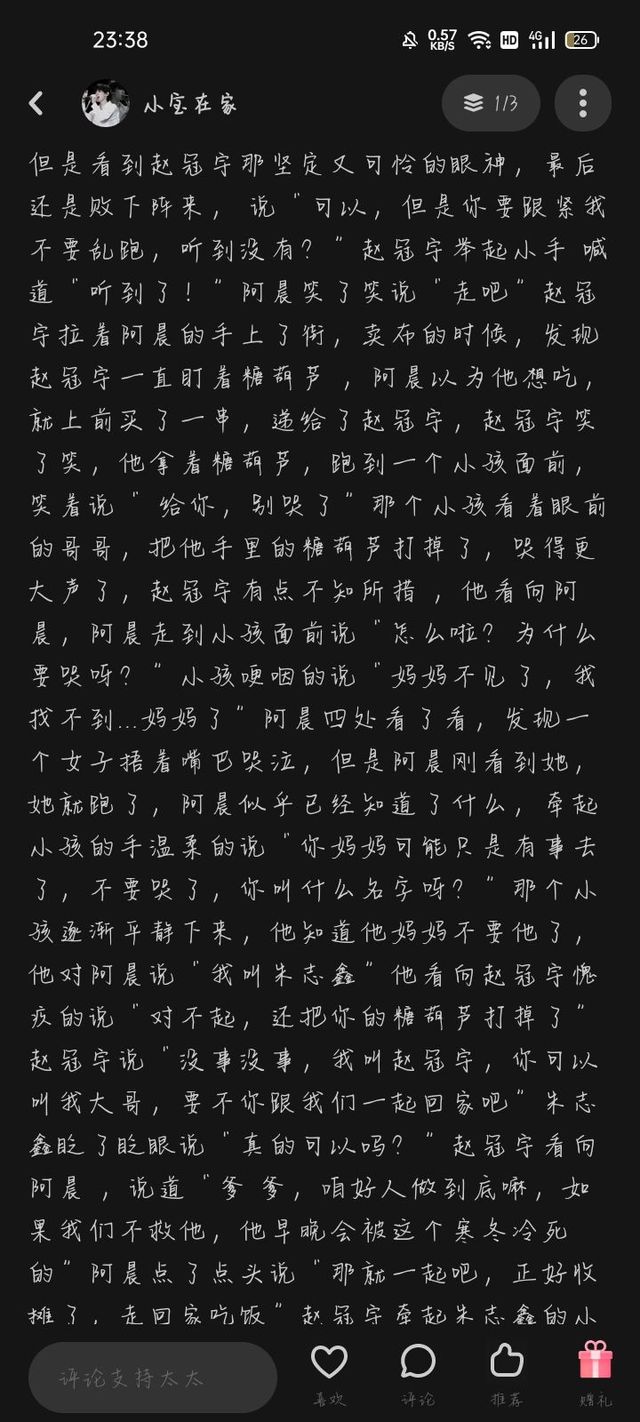 23:38
0.57
KB/S
HD
4G
26
小宝在家
1/3
但是看到赵冠宇那坚定又可怜的眼神，最后
还是败下阵来， 说“可以，但是你要跟紧我
不要乱跑，听到没有？”赵冠宇举起小手 喊
道“听到了！”阿晨笑了笑说“走吧”赵冠
宇拉着阿晨的手上了街，卖布的时候，发现
赵冠宇一直盯着糖葫芦 ，阿晨以为他想吃，
就上前买了一串，递给了赵冠宇，赵冠宇笑
了笑，他拿着糖葫芦，跑到一个小孩面前，
笑着说“ 给你，别哭了”那个小孩看着眼前
的哥哥，把他手里的糖葫芦打掉了，哭得更
大声了，赵冠宇有点不知所措 ，他看向阿
晨，阿晨走到小孩面前说“怎么啦？为什么
要哭呀？”小孩哽咽的说“妈妈不见了，我
找不到...妈妈了”阿晨四处看了看，发现一
个女子捂着嘴巴哭泣，但是阿晨刚看到她，
她就跑了，阿晨似乎已经知道了什么，牵起
小孩的手温柔的说“你妈妈可能只是有事去
了，不要哭了，你叫什么名字呀？”那个小
孩逐渐平静下来，他知道他妈妈不要他了，
他对阿晨说“我叫朱志鑫”他看向赵冠宇愧
疚的说“对不起，还把你的糖葫芦打掉了”
赵冠宇说“没事没事，我叫赵冠宇，你可以
叫我大哥，要不你跟我们一起回家吧”朱志
鑫眨了眨眼说“真的可以吗？”赵冠宇看向
阿晨 ，说道“爹爹，咱好人做到底嘛，如
果我们不救他，他早晚会被这个寒冬冷死
的”阿晨点了点头说“那就一起吧，正好收
摊了，走回家吃饭”赵冠宇牵起朱志鑫的小
评论支持太太
喜欢
评论
推荐
赠礼